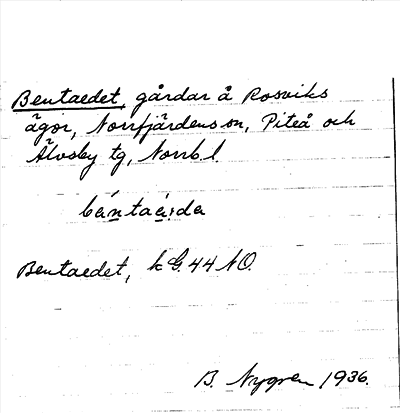 Bentaedet, gårdar å Rosviks
ägor, Norrfjärdens sn, Piteå och
Älvsby tg, Norrb. l.
bántaè:da
Bentaedet, k G. 44 NO.
B. Nygren 1936.